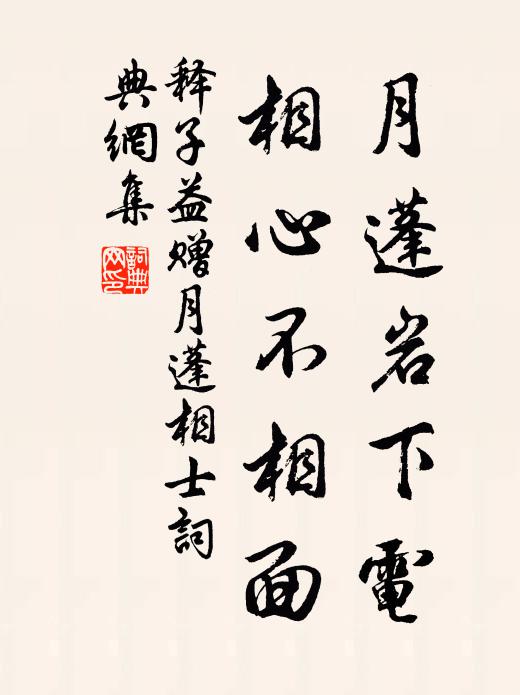 月蓬岩下電
相心不相面
释子益赠月蓬相士詞
典網集
詞典
网印